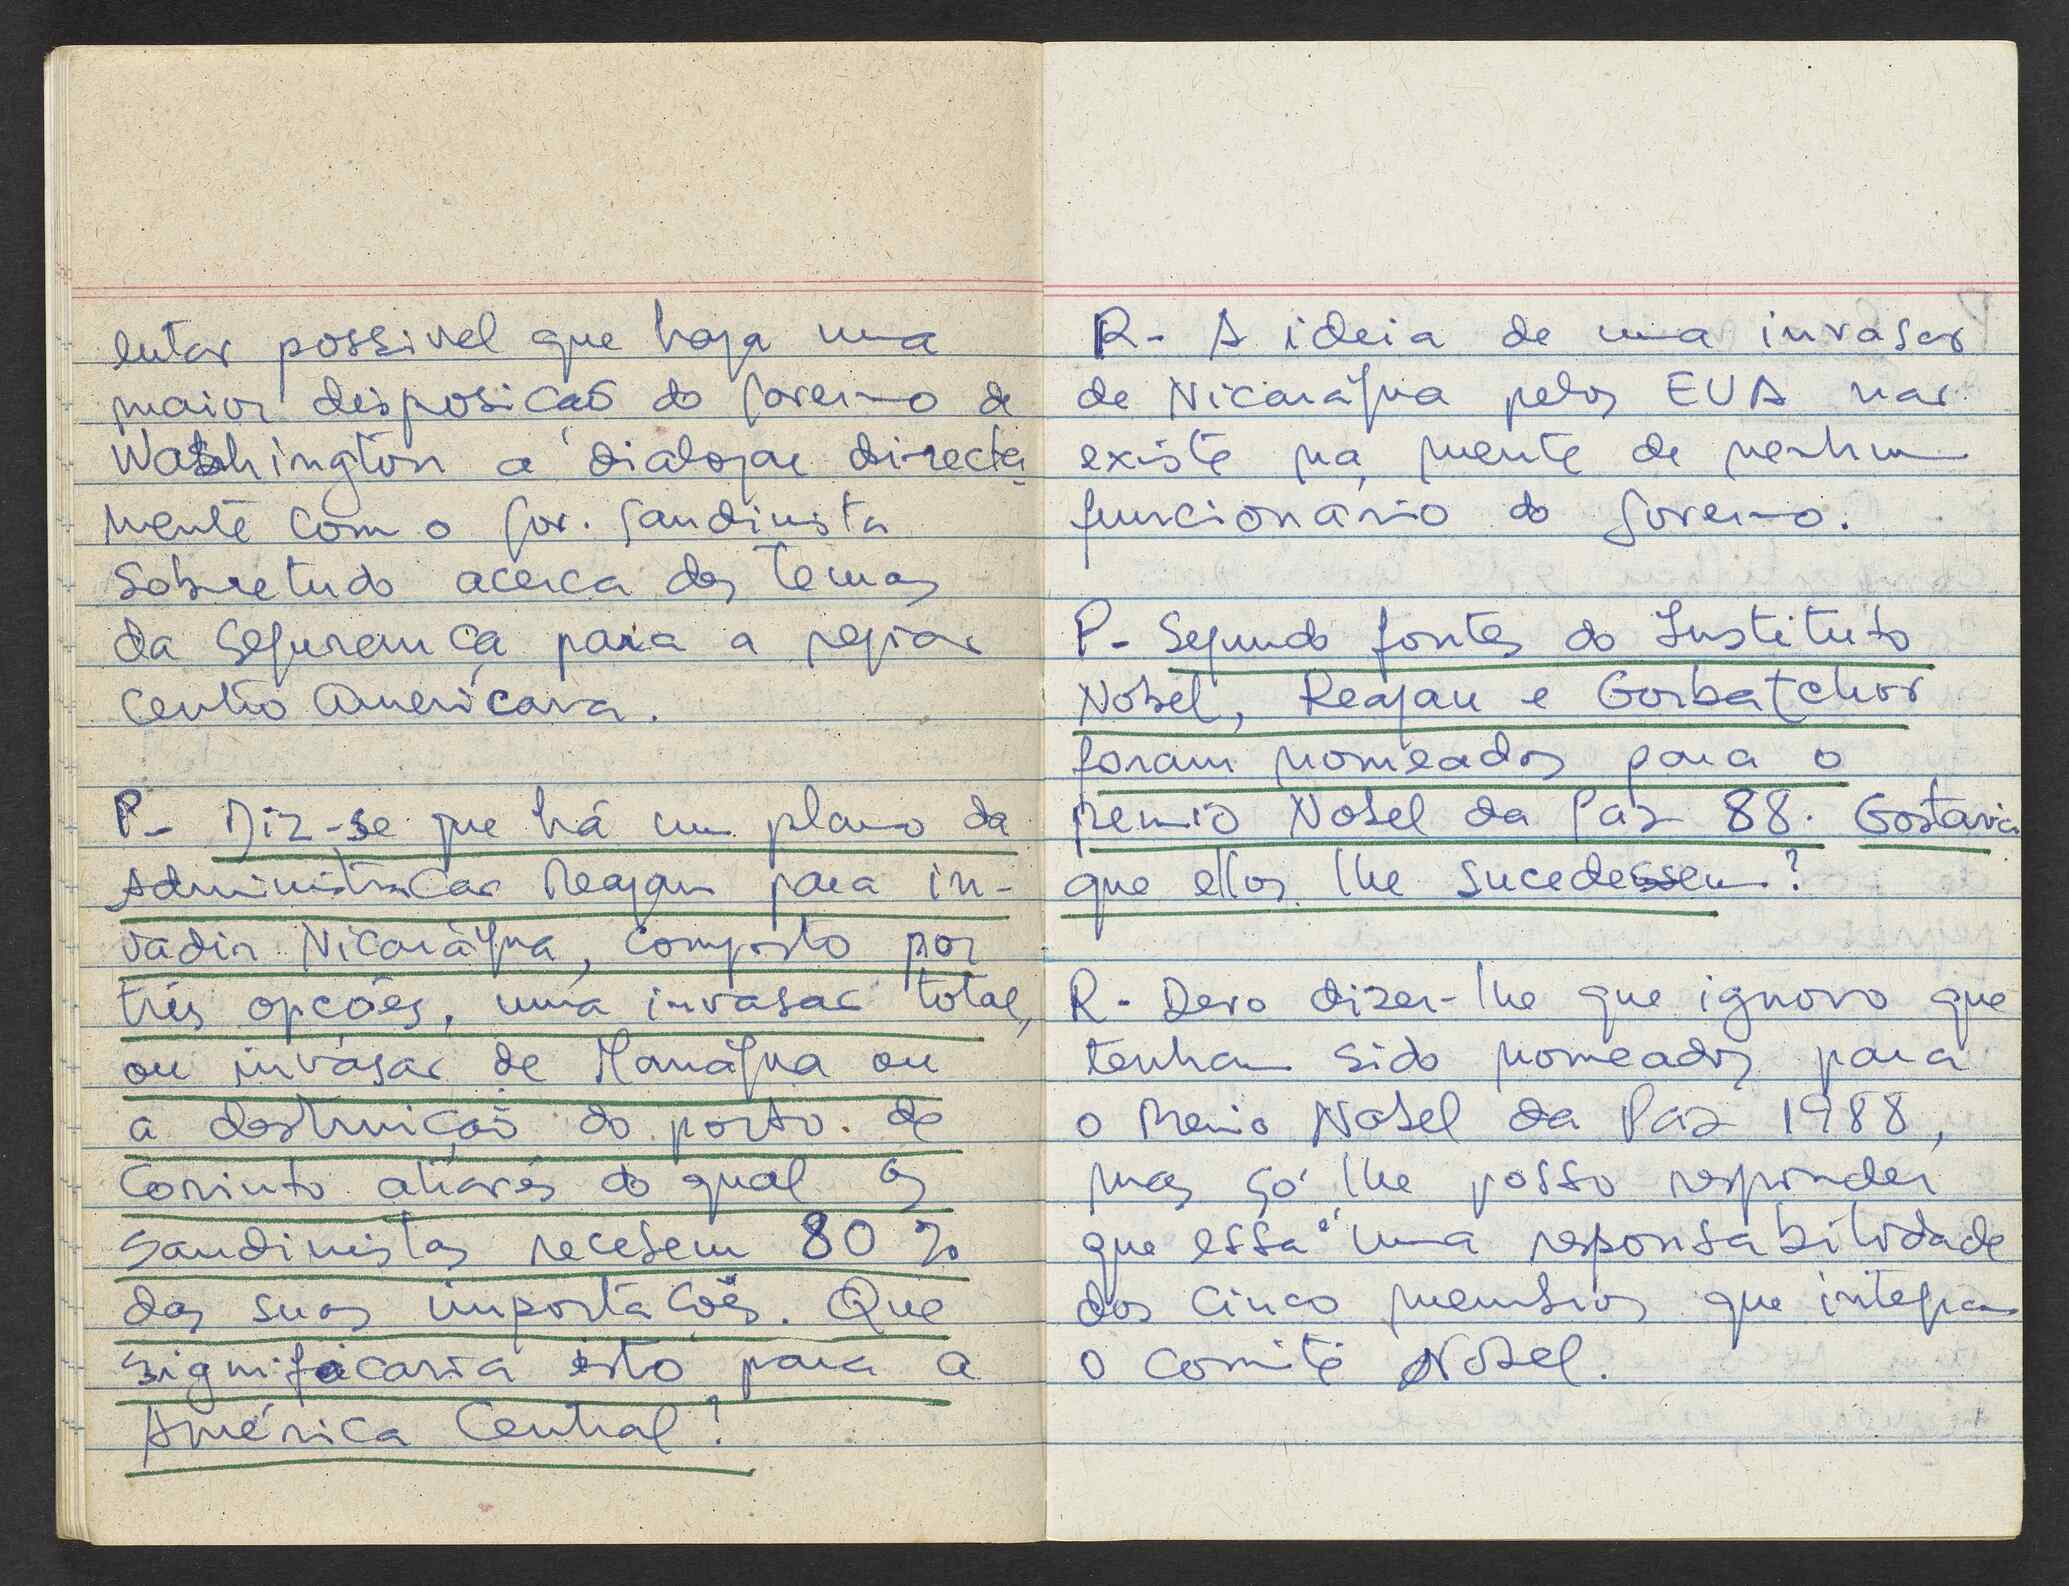 entar possivel que haja uma
maior disposição do governo de
Washington a dialogar directa
mente com o gov. Sandinista
sobretudo acerca dos temas
da segurança para a regiao
centro americana.
P- Diz-se que há um plano da
Administraçao Reagan para in-
vadir Nicarágua, composto por
três opções, uma invasao total,
ou invasao de Manágua ou
a destruição do porto de
Corinto através do qual os
sandinistas recebem 80%
das suas importações. Que
significaria isto para a
América Central?
R- A ideia de uma invasao
de Nicarágua pelos EUA nao
existe na mente de nenhum
funcionário do governo.
P- Segundo fontes do Instituto
Nobel, Reagan e Gorbatchov
foram nomeados para o
premio Nobel da Paz 88. Gostaria
que ellos lhe sucedessem?
R- Devo dizer-lhe que ignoro que
tenham sido nomeados para
o Premio Nobel da Paz 1988,
mas só lhe posso responder
que essa é uma responsabilidade
dos cinco membros que integram
o comité Nobel.